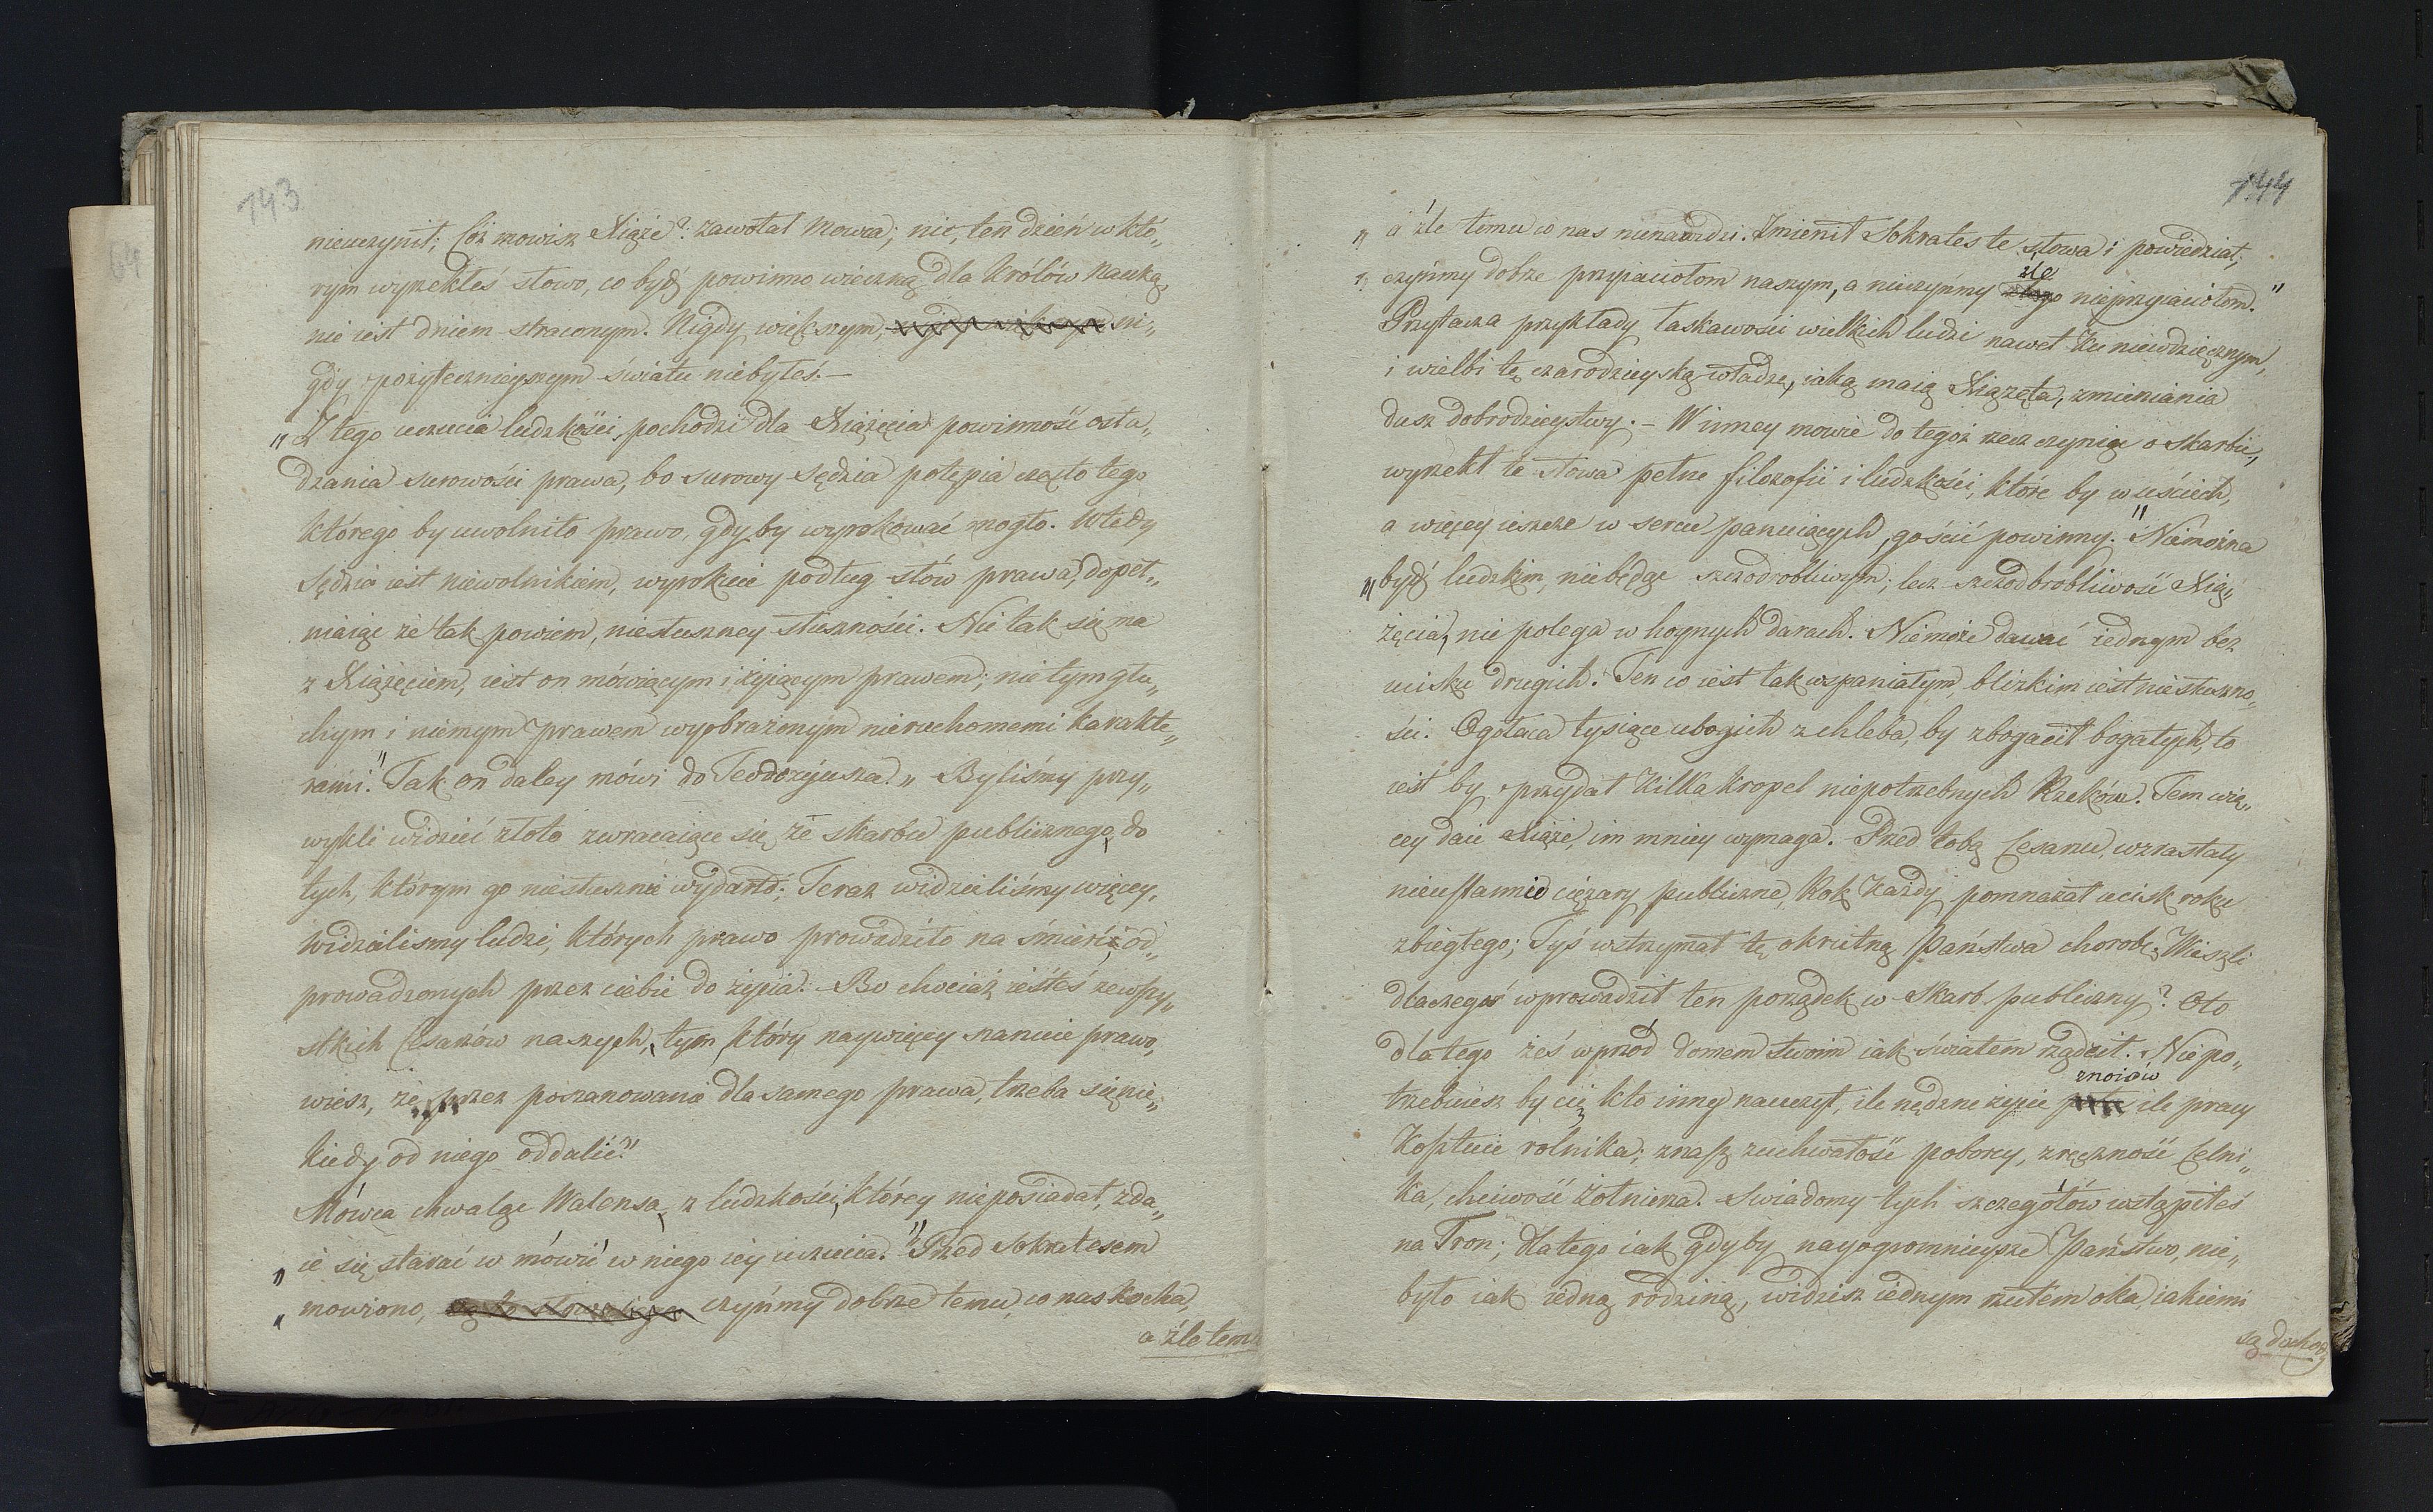 143
nieuczynił; Cóż mowisz Xiąże? zawołał Mowca; nie, ten dzień w któ„
rym wyrzekłeś słowo, co być powinno wieczną dla Królów nauką,
nie iest dniem straconym. Nigdy większym, ni„
gdy pożytecznieyszym światu niebyłeś.—
„Z tego uczucia ludzkości, pochodzi dla Xiążęcia powinność osła„
dzania surowości prawa, bo surowy sędzia potępia często tego
którego by uwolniło prawo, gdyby wyrokować mogło. Wtedy
Sędzia iest niewolnikiem, wyrokuie podług słów prawa, dopeł„
niaiąc że tak powiem, niesłuszney słuszności. Nie tak się ma
z Xiążęciem, iest on mówiącym i żyiącym prawem; nie tym głu„
chym i niemym prawem wyobrażonym nieruchomemi karakte„
rami." Tak on daley mówi do Teodozyusza. „Byliśmy przy„
wykli widzieć złoto zwracaiące się ze skarbu publicznego, do
tych, którym go niesłusznie wydarto; Teraz widzieliśmy więcey,
widzieliśmy ludzi, których prawo prowadziło na śmierć, od„
prowadzonych przez ciebie do życia. Bo chociaż iesteś zewszy„
stkich Cesarzów naszych, tym, który naywięcey szanuie prawo,
wiesz, że przez poszanowanie dla samego prawa, trzeba się nie„
kiedy od niego oddalić."
Mówca chwaląc Walensa, z ludzkości, którey nieposiadał, zda„
ie się starać w mówić w niego iey uczucia. "Przed Sokratesem
„mowiono, czyńmy dobrze temu, co nas kocha,
a źle temu
144
„a źle temu co nas nienawidzi. Zmienił Sokrates te słowa i powiedział;
„czyńmy dobrze przyiaciołom naszym, a nieczyńmy źle nieprzyiaciołom."
Przytacza przykłady łaskawości wielkich ludzi nawet ku niewdzięcznym,
i wielbi tę czarodzieyską władzę, iaką maią Xiążęta, zmieniania
dusz dobrodzieystwy.— W inney mowie do tegoż rzecz czyniąc o Skarbie,
wyrzekł te słowa pełne filozofii i ludzkości, które by w uściech,
a więcey ieszcze w sercu panuiących, gościć powinny. "Niemożna
„być ludzkim, niebędąc szczodrobliwym; lecz szczodbrobliwość Xią„
żęcia, nie polega w hoynych darach. Niemoże dawać iednym bez
ucisku drugich. Ten co iest tak wspaniałym, blizkim iest niesłuszno„
ści. Ogołaca tysiące ubogich z chleba, by zbogacił bogatych, to
iest by przydał kilka kropel niepotrzebnych Rzekóm. Tem wię„
cey daie Xiąże, im mniey wymaga. Przed tobą Cesarzu, wzrastały
nieustannie ciężary publiczne, Rok każdy pomnażał ucisk roku
zbiegłego; Tyś wstrzymał tę okrutną Państwa chorobę. Wieszli
dlaczegoś wprowadził ten porządek w Skarb publiczny? Oto
dla tego żeś wprzód domem twoim iak światem rządził. Niepo„
trzebuiesz by cię kto inny nauczył, ile nędzne życie znoiów ile pracy
kosztuie rolnika; znasz zuchwałość poborcy, zręczność Celni„
ka, chciwość żołnierza. Swiadomy tych szczegółów wstąpiłeś
na Tron; dla tego iak gdyby nayogromnieysze Państwo, nie„
było iak iedną rodziną, widzisz iednym rzutem oka, iakiemi
są dochody